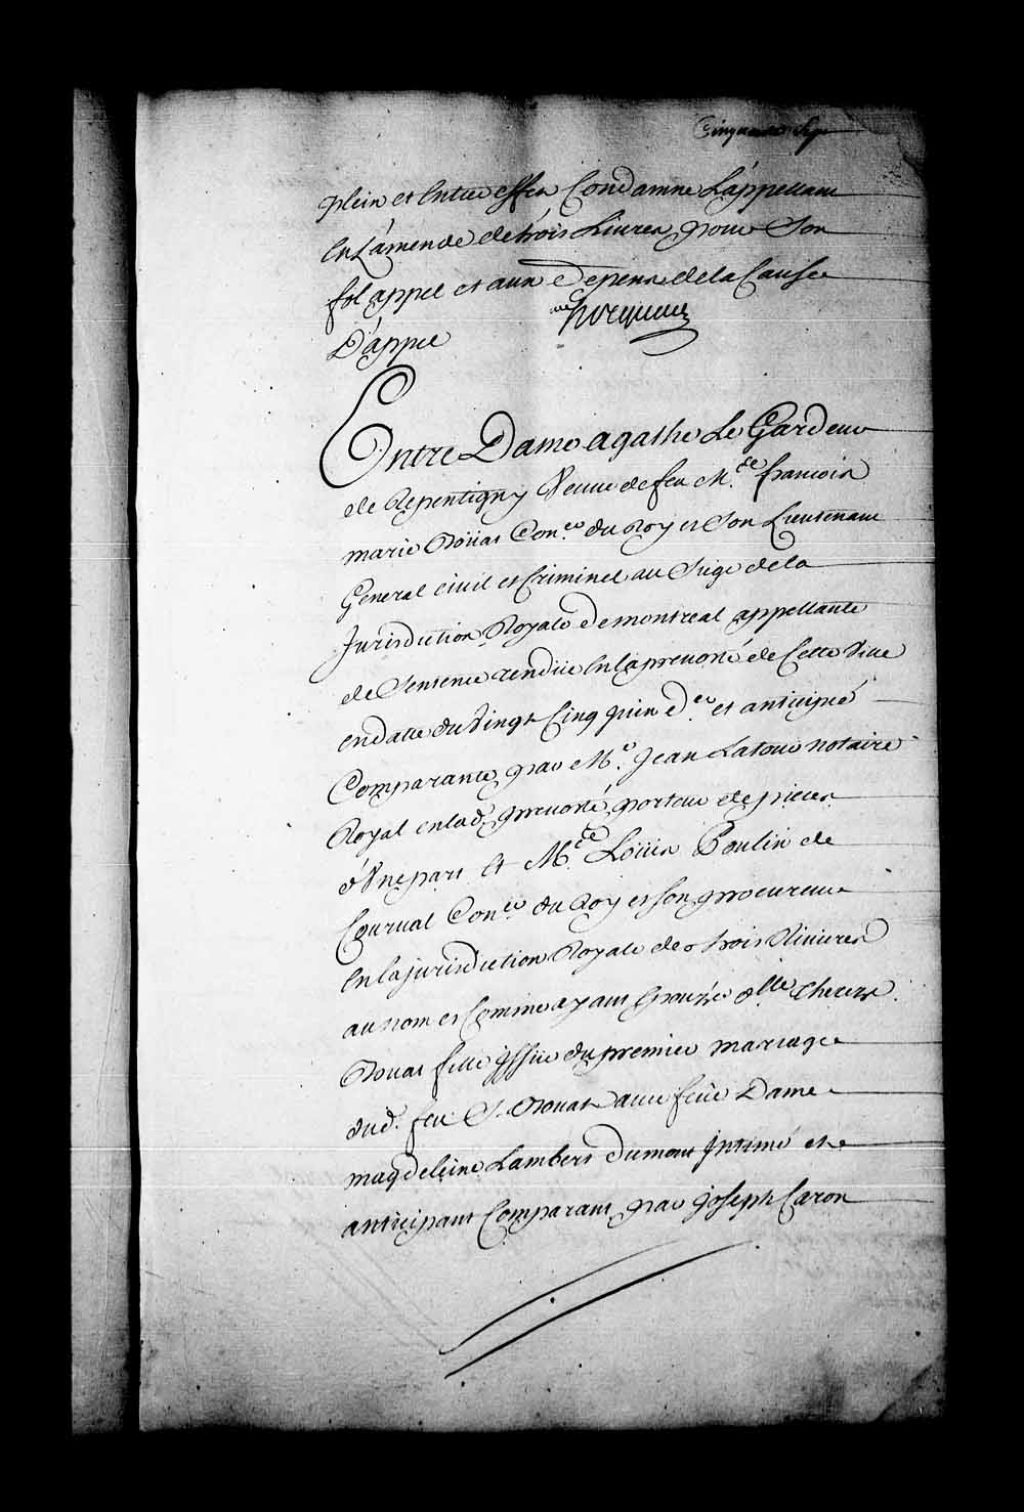 Cinquante Sept
plein et Entier effet Condamne L'appellant
En L'amende de trois Livres pour Son
fol appel et aux Depens de la Cause
D'appel
hocquart
Entre Dame agathe Le Gardeur
de Repentigny Veuve de feu M.re francois
marie Boüat Con.er du Roy et Son Lieutenant
General civil et Criminel au Siege de la
Jurisdiction Royale de montreal appellante
de Sentence rendüe En la prevosté de Cette Ville
en datte du Vingt Cinq juin d.er et anticipée
Comparante par M.e Jean Latour notaire
Royal en lad. prevosté porteur de pieces
d'Une part Et M.re Loüis Poulin de
Courval Con.er du Roy et Son procureur
En la jurisdiction Royale des trois Rivieres
au nom et Comme ayant Epousée d.lle Therese
Boüat fille jssüe du premier mariage
dud. feu S. Boüat avec feüe Dame
magdeleine Lambert Dumont Intimé et
anticipant Comparant par joseph Caron